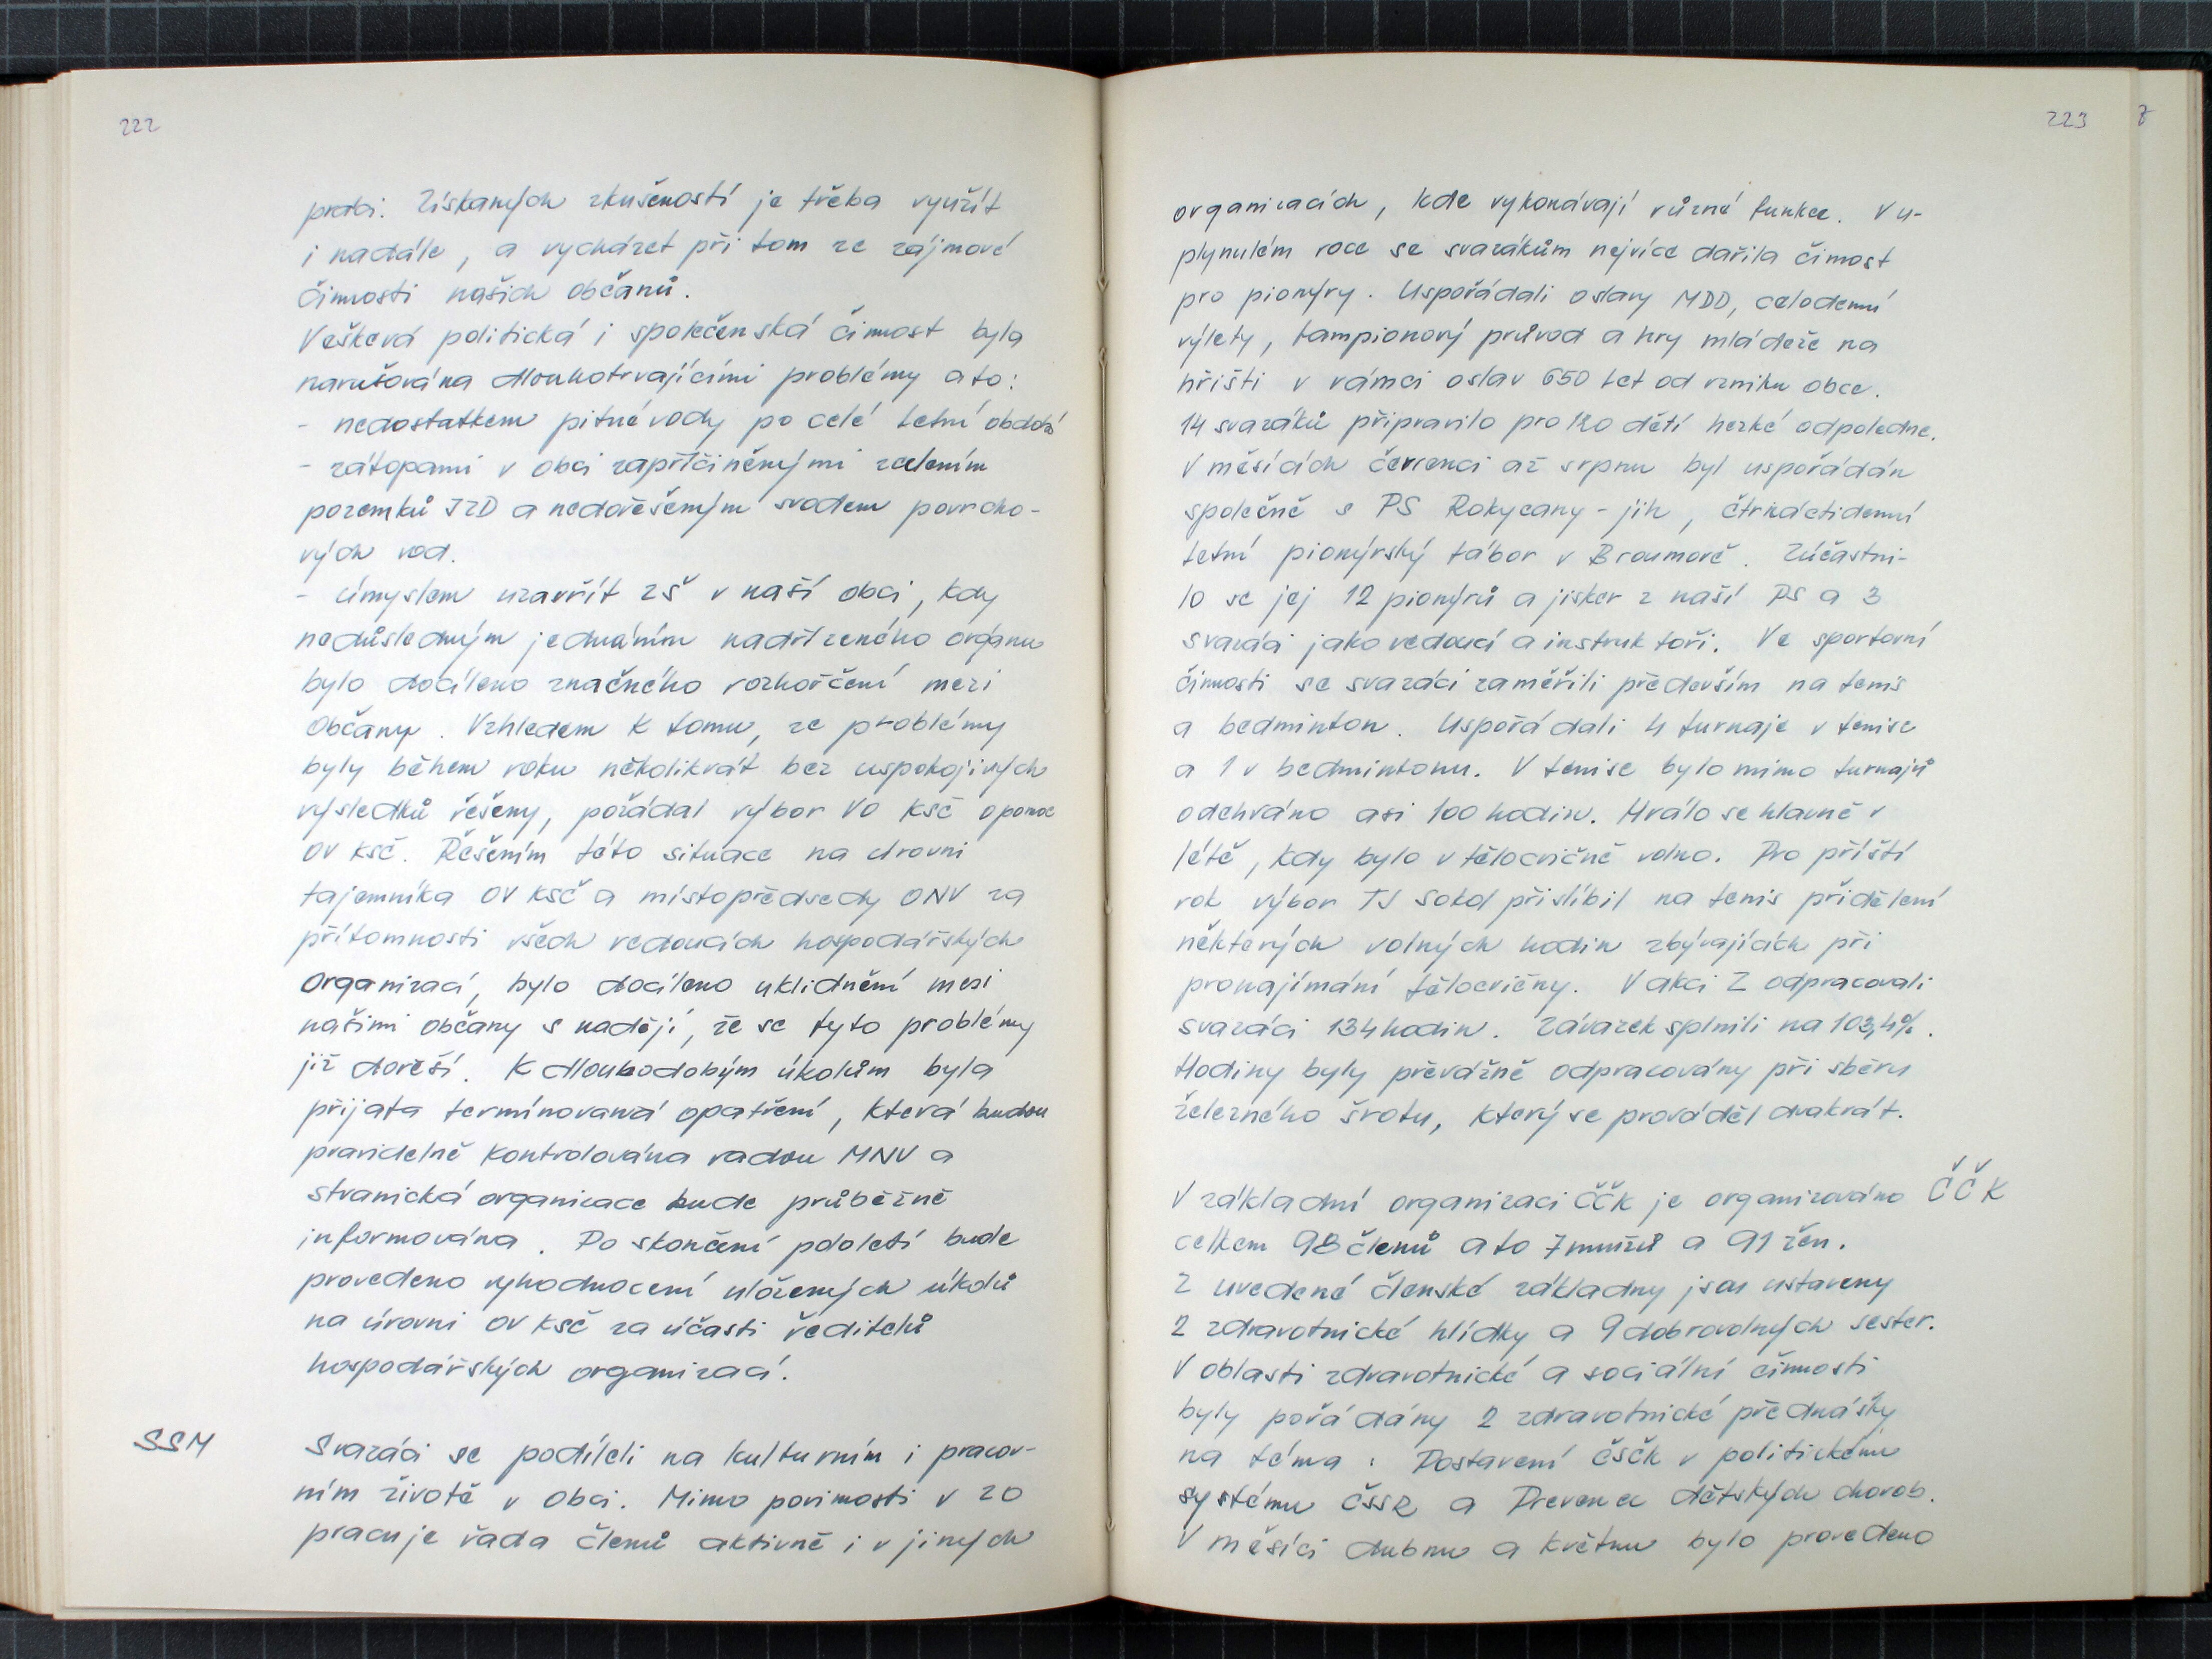 222
práci. Získaných zkušeností je třeba využít
i nadále, a vycházet při tom ze zájmové
činnosti našich občanů.
Veškerá politická i společenská činnost byla
narušována dlouhotrvajícími problémy a to:
- nedostatkem pitné vody po celé letní období
- zátopami v obci zapříčiněnými scelením
pozemků JZD a nedořešeným svodem povrcho-
vých vod.
- úmyslem uzavřít ZŠ v naší obci, kdy
nedůsledným jednáním nadřízeného orgánu
bylo docíleno značného rozhořčení mezi
občany. Vzhledem k tomu, že problémy
byly během roku několikrát bez uspokojivých
výsledků řešeny, požádal výbor VO KSČ o pomoc
OV KSČ. Řešením této situace na úrovni
tajemníka OV KSČ a místopředsedy ONV za
přítomnosti všech vedoucích hospodářských
organizací, bylo docíleno uklidnění mezi
našimi občany s nadějí, že se tyto problémy
již dořeší. K dlouhodobým úkolům byla
přijata termínovaná opatření, která budou
pravidelně kontrolována radou MNV a
stranická organizace bude průběžně
informována. Po skončení pololetí bude
provedeno vyhodnocení uložených úkolů
na úrovni OV KSČ za účasti ředitelů
hospodářských organizací.
SSM
Svazáci se podíleli na kulturním i pracov-
ním životě v obci. Mimo povinnosti v ZO
pracuje řada členů aktivně i v jiných
223
organizacích, kde vykonávají různé funkce. V u-
plynulém roce se svazákům nejvíce dařila činnost
pro pionýry. Uspořádali oslavy MDD, celodenní
výlety, lampionový průvod a hry mládeže na
hřišti v rámci oslav 650 let od vzniku obce.
14 svazáků připravilo pro 120 dětí hezké odpoledne.
V měsících červenci až srpnu byl uspořádán
společně s PS Rokycany - jih, čtrnáctidenní
letní pionýrský tábor v Broumově. Zúčastni-
lo se jej 12 pionýrů a jisker z naší PS a 3
svazáci jako vedoucí a instruktoři. Ve sportovní
činnosti se svazáci zaměřili především na tenis
a bedminton. Uspořádali 4 turnaje v tenise
a 1 v bedmintonu. V tenise bylo mimo turnajů
odehráno asi 100 hodin. Hrálo se hlavně v
létě, kdy bylo v tělocvičně volno. Pro příští
rok výbor TJ Sokol přislíbil na tenis přidělení
některých volných hodin zbývajících při
pronajímání tělocvičny. V akci Z odpracovali
svazáci 134 hodin. Závazek splnili na 103,4%.
Hodiny byly převážně odpracovány při sběru
železného šrotu, který se prováděl dvakrát.
ČČK
V základní organizaci ČČK je organizováno
celkem 98 členů a to 7 mužů a 91 žen.
Z uvedené členské základny jsou ustaveny
2 zdravotnické hlídky a 9 dobrovolných sester.
V oblasti zdravotnické a sociální činnosti
byly pořádány 2 zdravotnické přednášky
na téma: Postavení ČSČK v politickém
systému ČSSR a Prevence dětských chorob.
V měsíci dubnu a květnu bylo provedeno